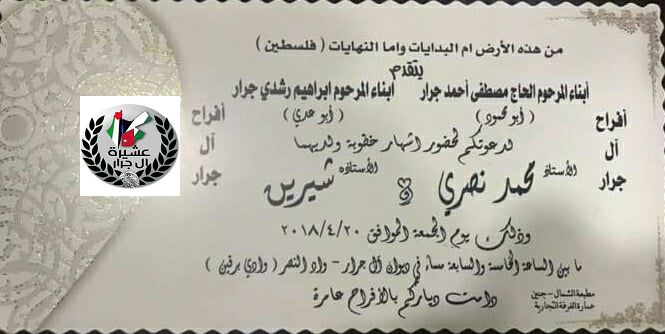 من هذه الأرض ام البدايات واما النهايات ( فلسطين )
يتقدم
أبناء المرحوم الحاج مصطفى أحمد جرار
أبناء المرحوم ابراهيم رشدي جرار
( أبو محمود )
( أبو عدي )
أفراح
آل
جرار
أفراح
آل
جرار
لدعوتكم لحضور اشهار خطوبة ولديهما
الأستاذ محمد نصري و الأستاذه شيرين
وذلك يوم الجمعة الموافق ٢٠١٨/٤/٢٠
ما بين الساعة الخامسة والسابعة مساءً في ديوان آل جرار - واد النصر ( وادي برقين )
دامت دياركم بالأفراح عامرة
مطبعة الشمال - جنين
عمارة الغرفة التجارية
عشيرة
آل جرار